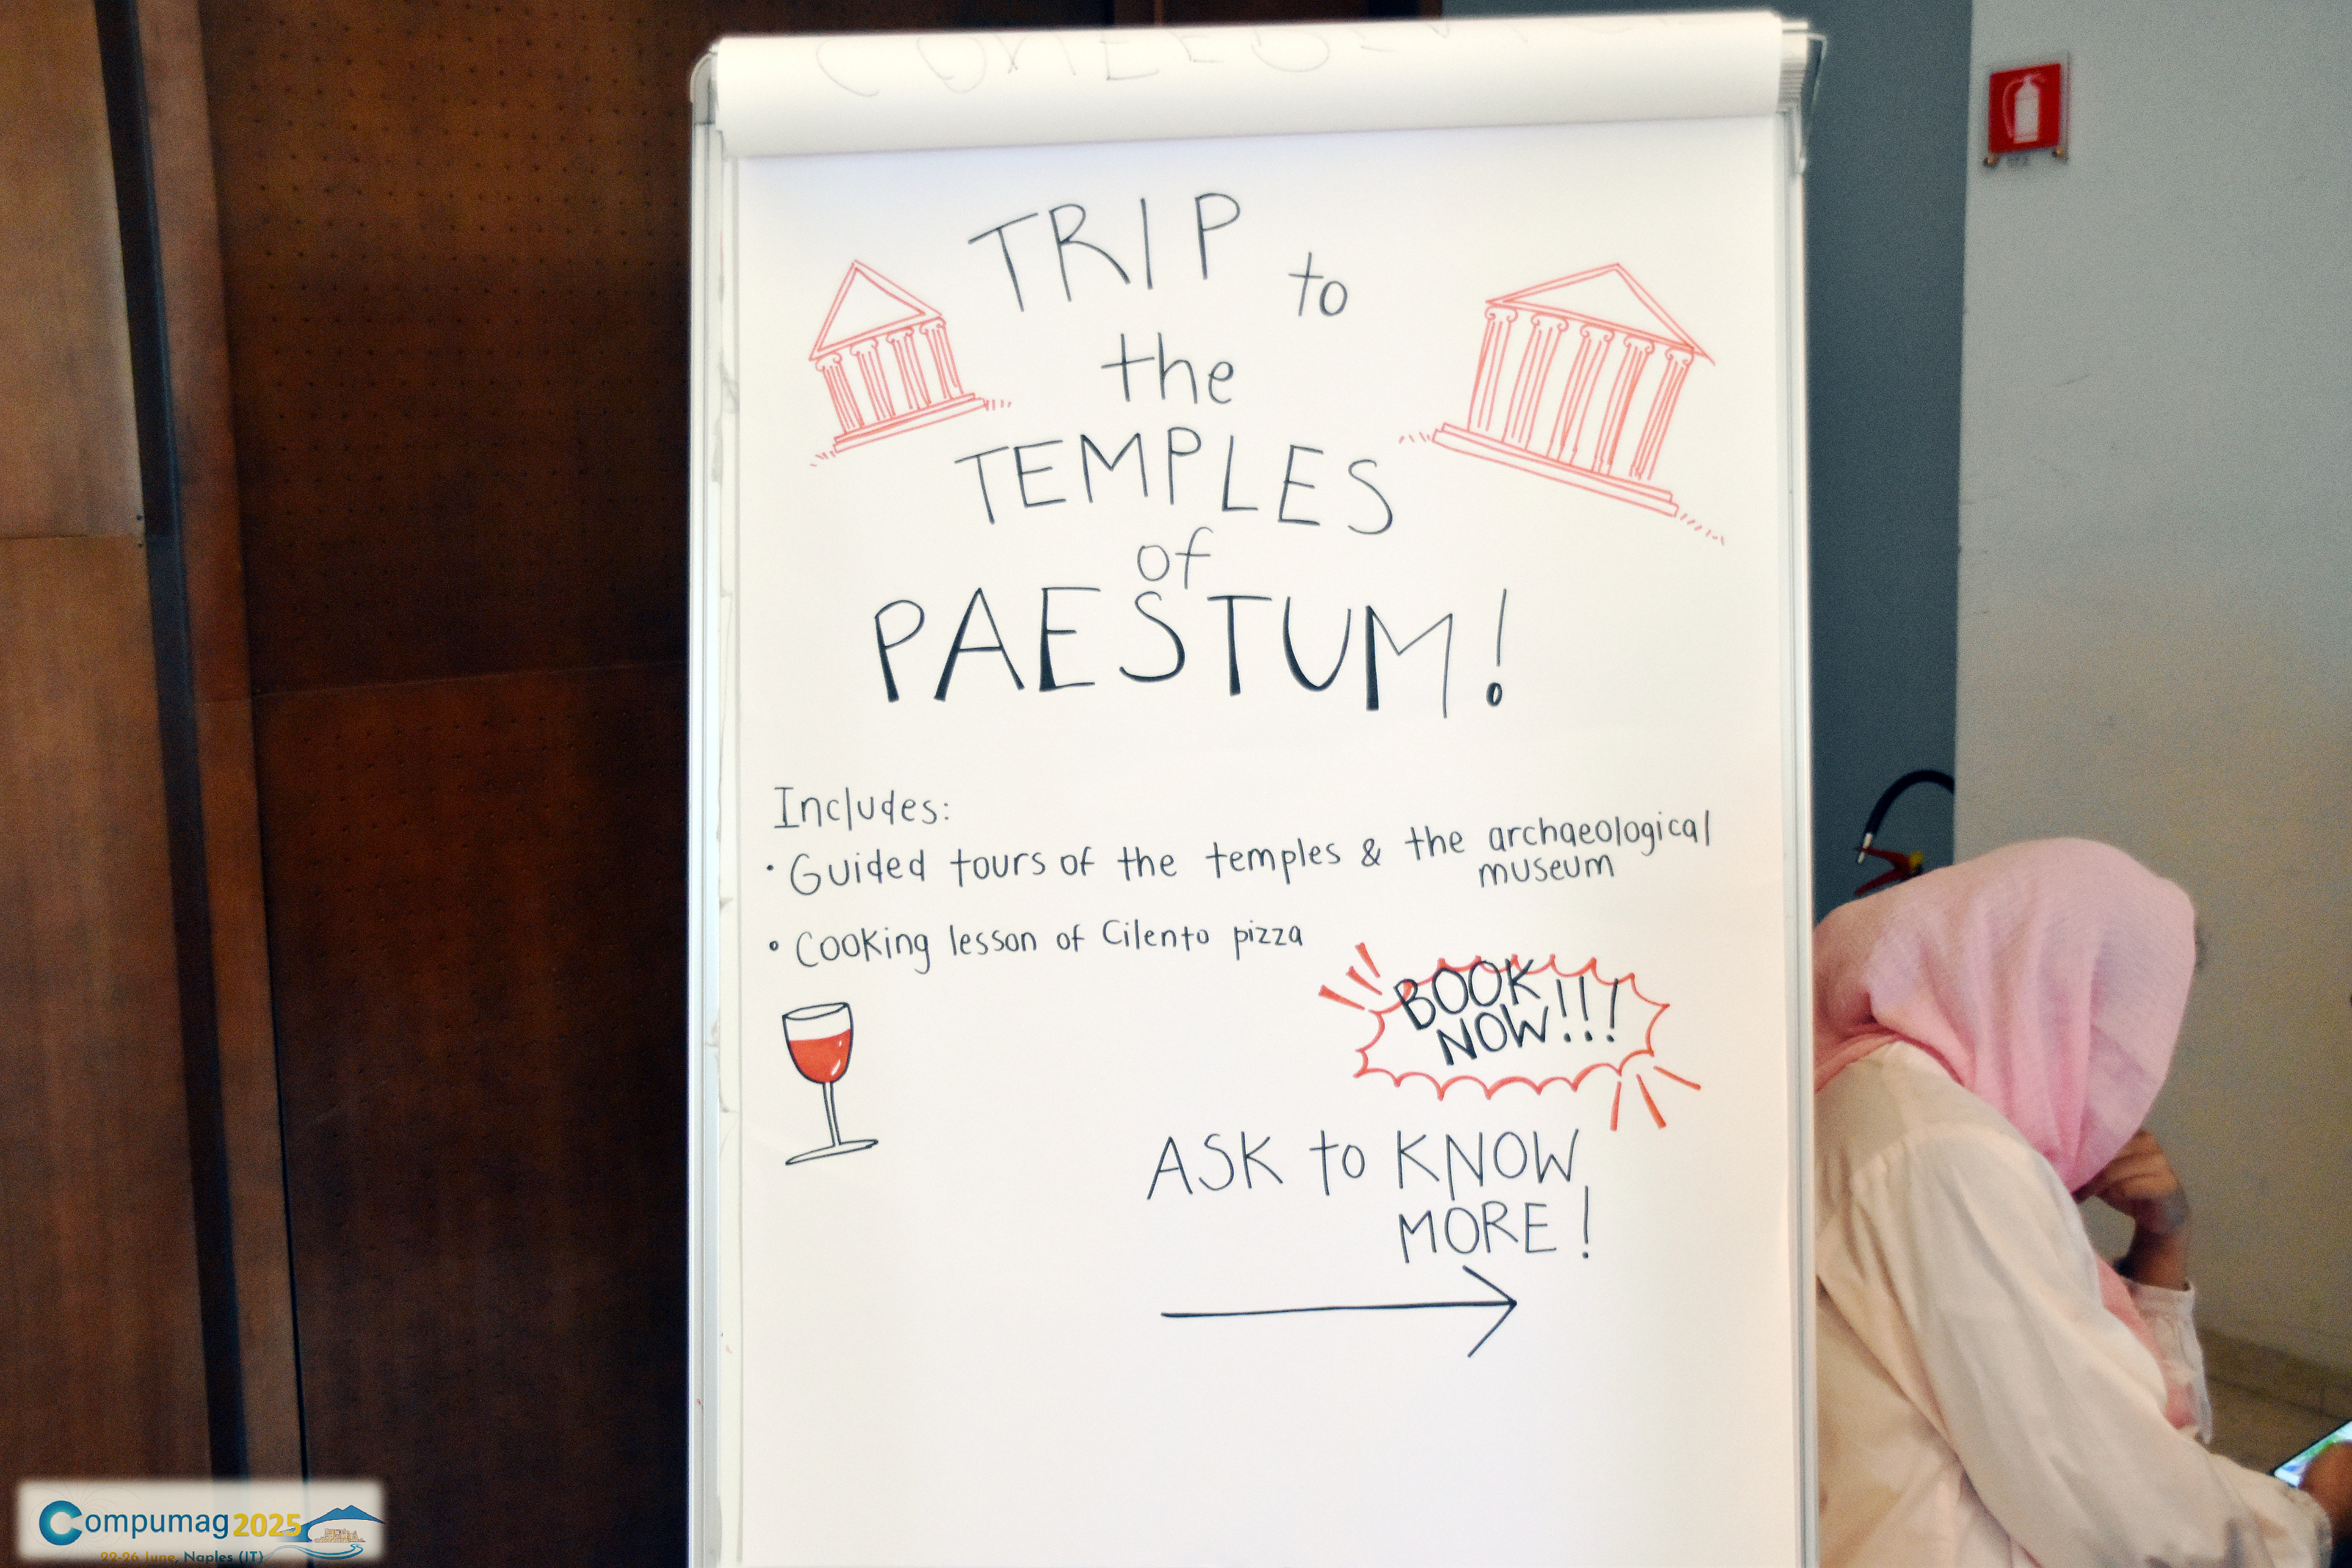 TRIP to
the
TEMPLES
of
PAESTUM!
Includes:
· Guided tours of the temples & the archaeological
museum
• Cooking lesson of Cilento pizza
BOOK
NOW!!!
ASK to KNOW
MORE!
Compumag 2025
22-26 June, Naples (IT)